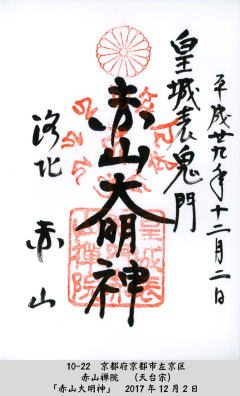 平成廿九年十二月二日
皇城表鬼門
赤山大明神
洛北 赤山
皇城表
山禅院
10-22 京都府京都市左京区
赤山禅院 (天台宗)
「赤山大明神」 2017年12月2日